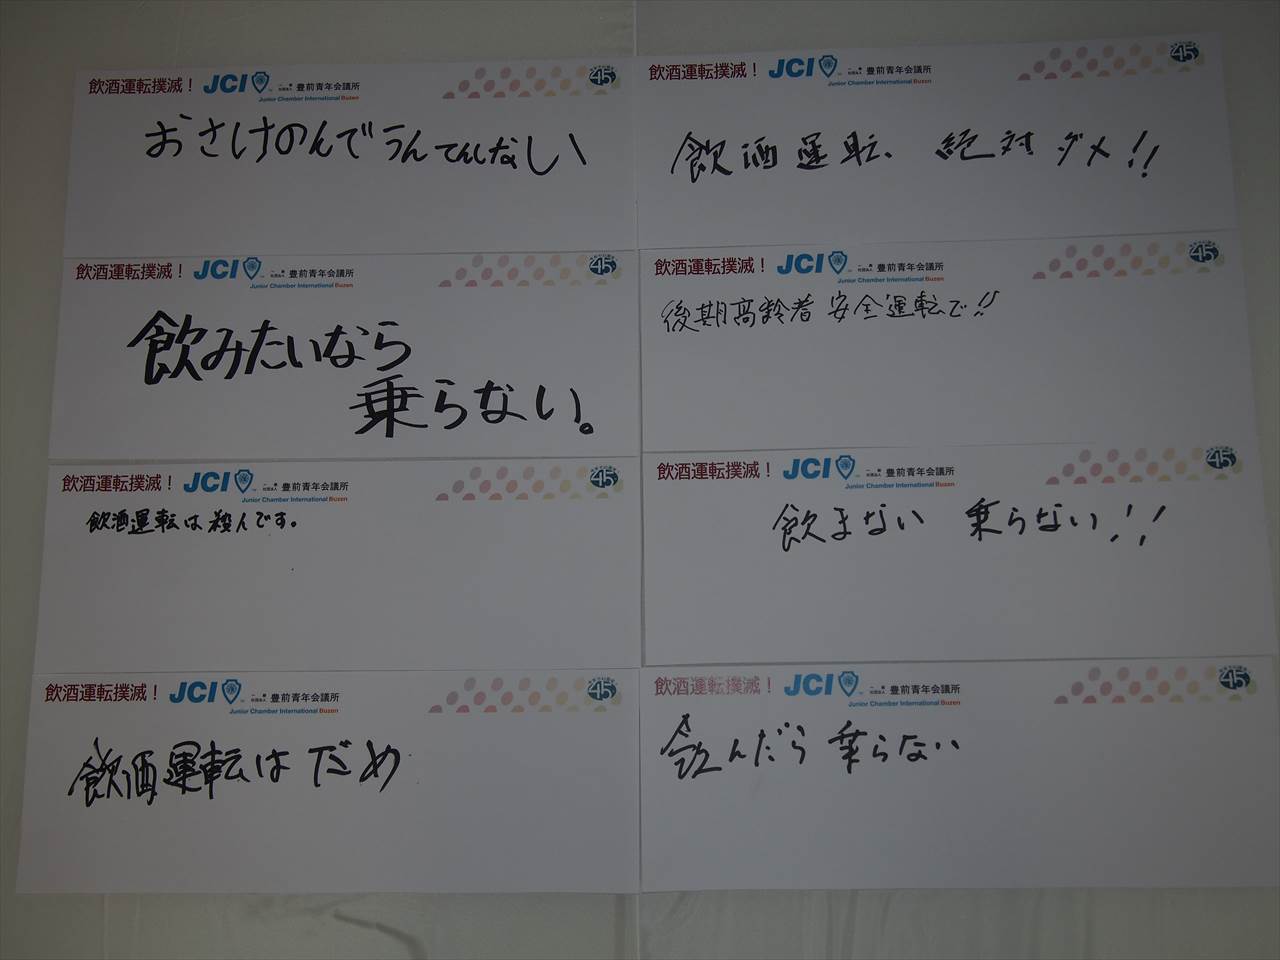 飲酒運転撲滅！ JCI 一般社団法人 豊前青年会議所 45
Junior Chamber International Buzen
おさけのんでうんてんしなしい
飲酒運転撲滅！ JCI 一般社団法人 豊前青年会議所 45
Junior Chamber International Buzen
飲酒運転、絶対ダメ!!
飲酒運転撲滅！ JCI 一般社団法人 豊前青年会議所 45
Junior Chamber International Buzen
飲みたいなら
乗らない。
飲酒運転撲滅！ JCI 一般社団法人 豊前青年会議所 45
Junior Chamber International Buzen
後期高齢者 安全運転で!!
飲酒運転撲滅！ JCI 一般社団法人 豊前青年会議所 45
Junior Chamber International Buzen
飲酒運転は殺人です。
飲酒運転撲滅！ JCI 一般社団法人 豊前青年会議所 45
Junior Chamber International Buzen
飲まない 乗らない!!
飲酒運転撲滅！ JCI 一般社団法人 豊前青年会議所 45
Junior Chamber International Buzen
飲酒運転はだめ
飲酒運転撲滅！ JCI 一般社団法人 豊前青年会議所 45
Junior Chamber International Buzen
飲んだら 乗らない